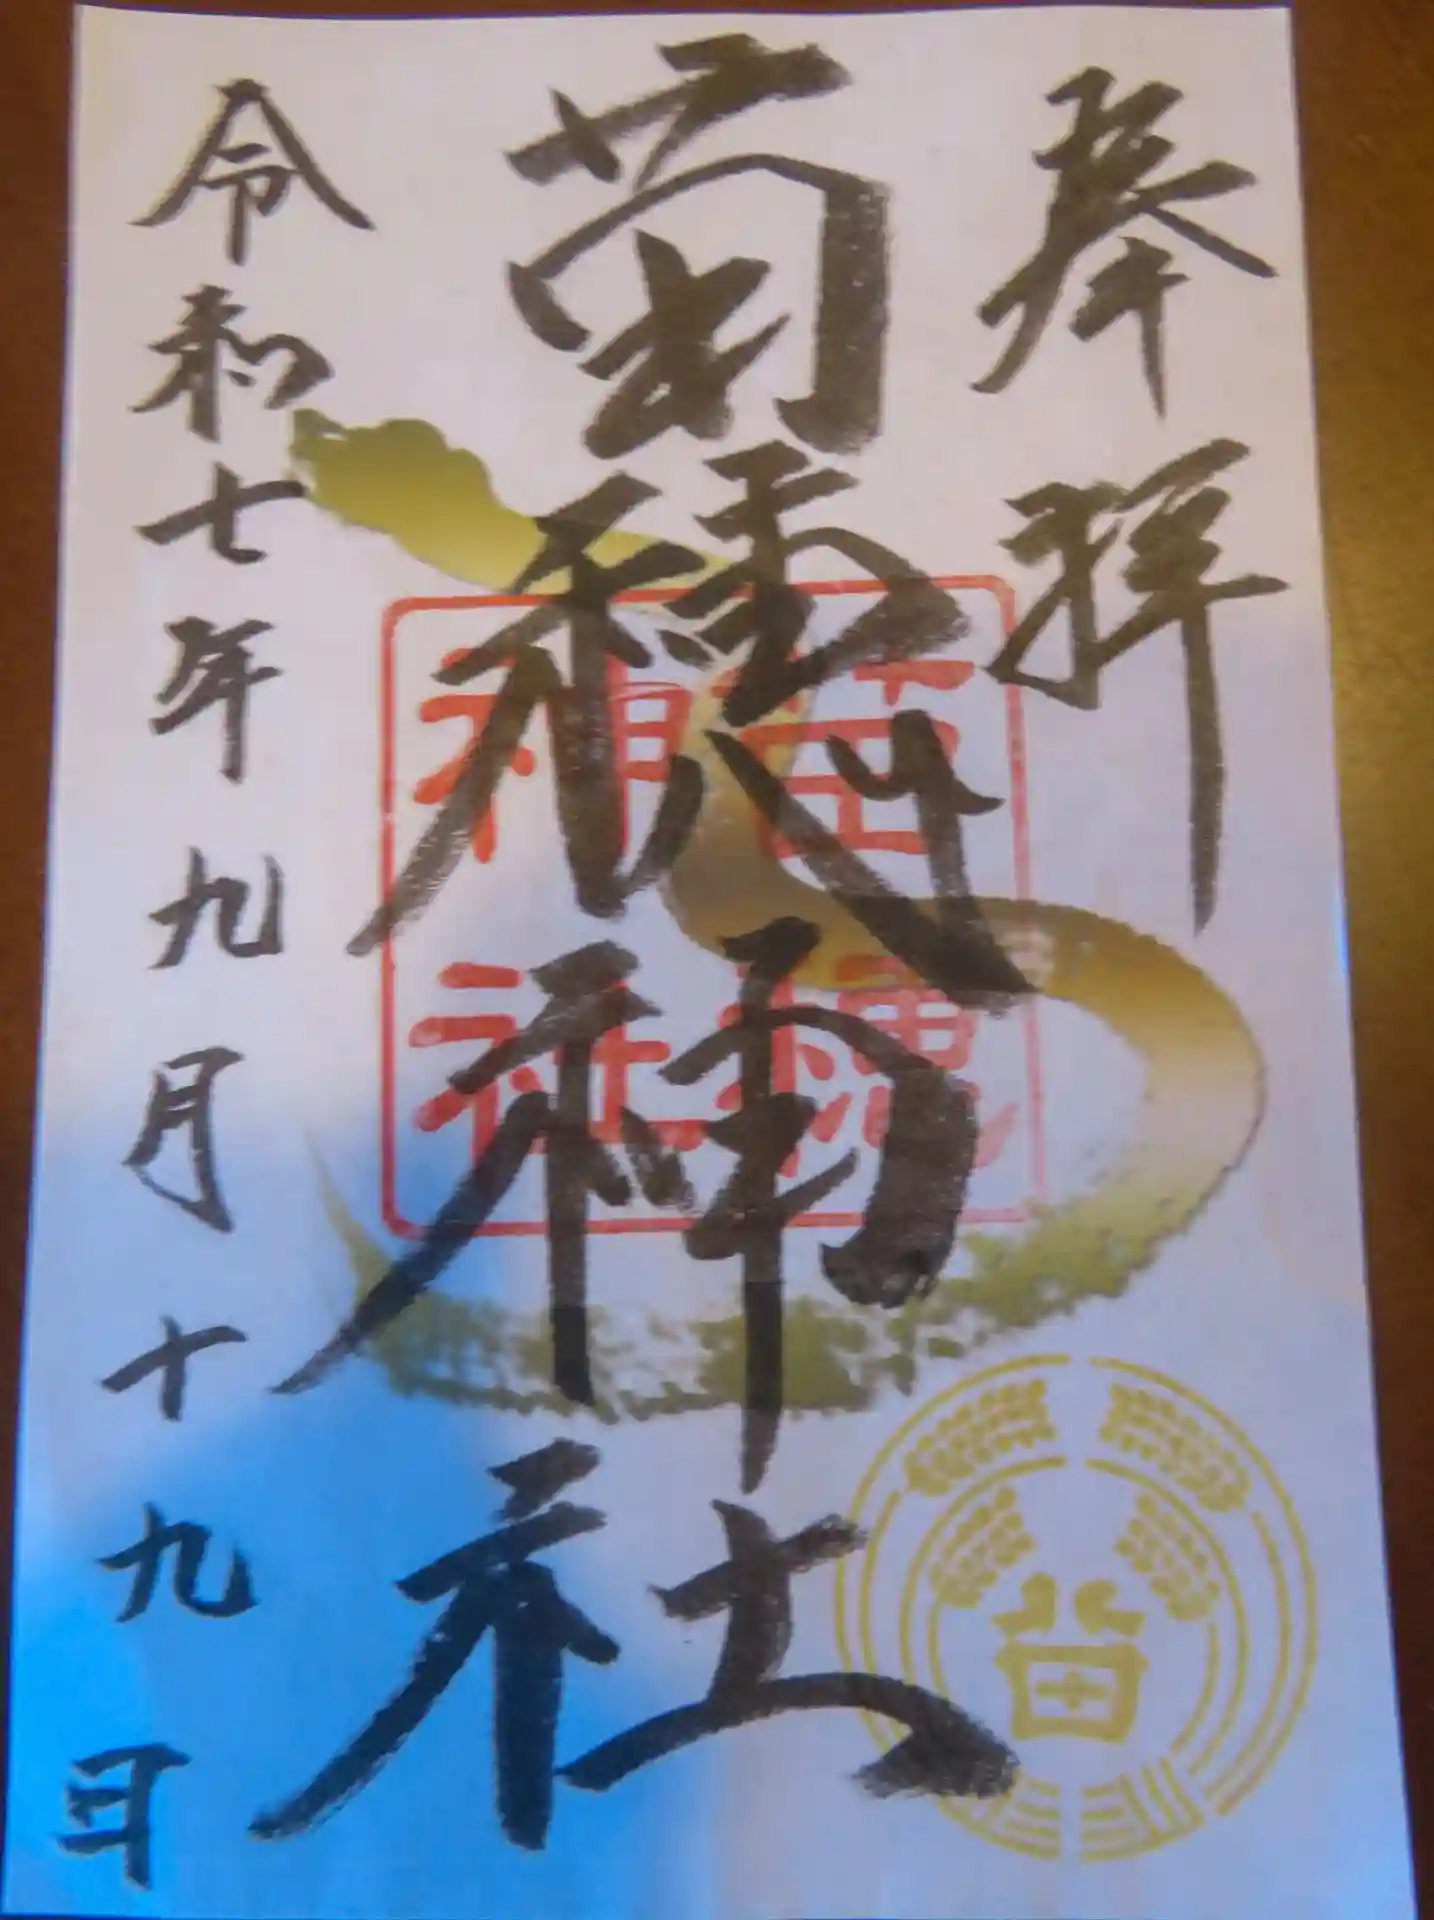 奉拝
苗穂神社
令和七年九月十九日
苗穂
神社
苗